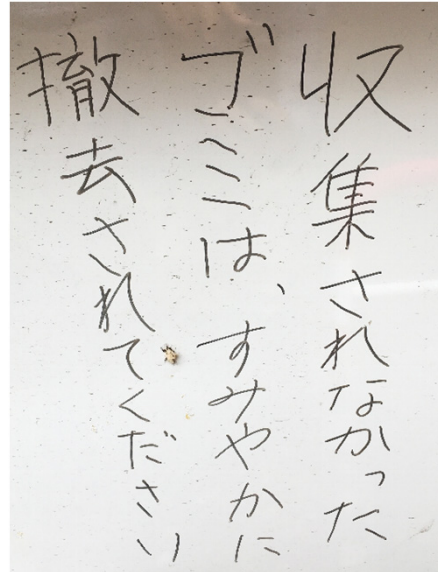 収集されなかった
ゴミは、すみやかに
撤去されてください